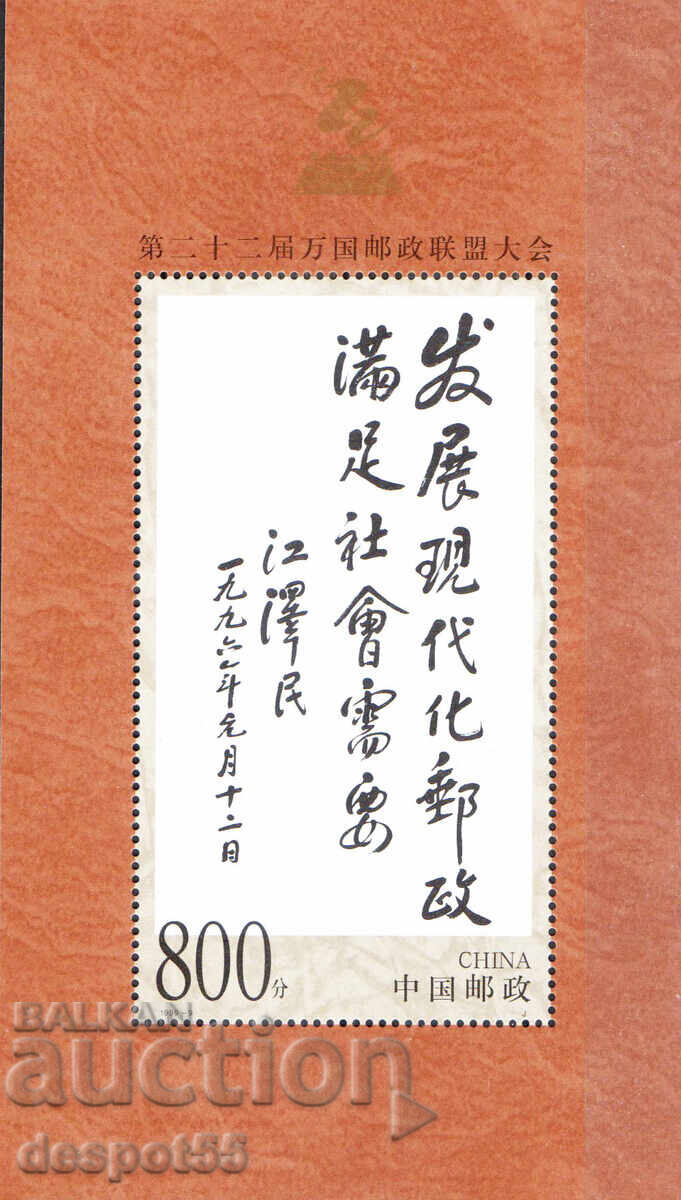 第二十二届万国邮政联盟大会
发展现代化郵政
滿足社會需要
江澤民
一九九六年元月十二日
800分
CHINA
中国邮政
1999-9
J
BALKAN
auction
despot55